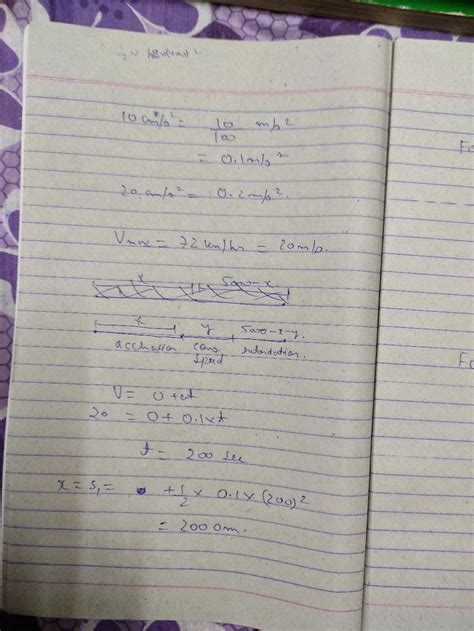 10 cm/s² = 10/100 m/s²
= 0.1 m/s²
20 cm/s² = 0.2 m/s².
Vmax = 72 km/hr = 20 m/s.
x 5000-x
x y 5000-x-y.
accleration cons. speed retardation.
V = 0 + at
20 = 0 + 0.1 x t
t = 200 sec
x = S₁ = + 1/2 x 0.1 x (200)²
= 2000 m.
Fo
Fo